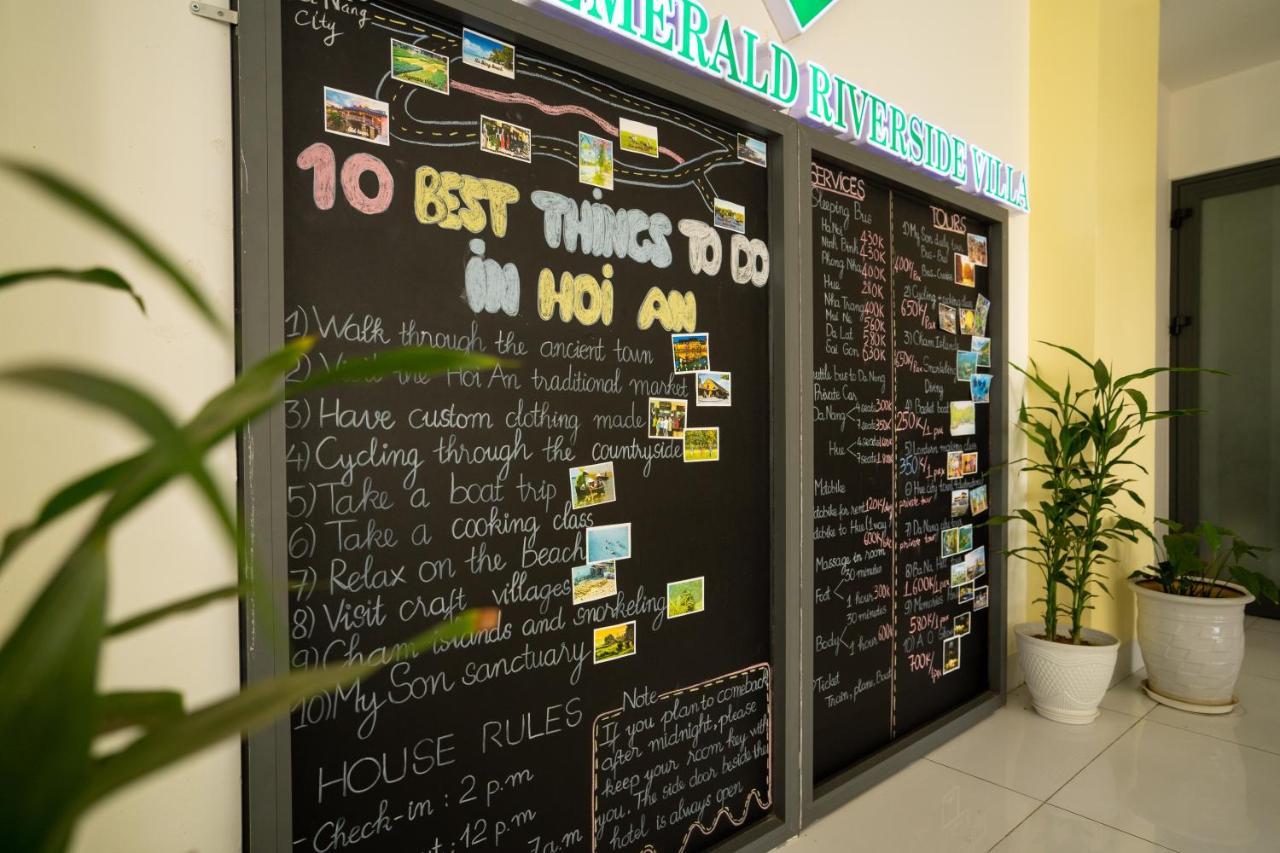 EMERALD RIVERSIDE VILLA
Nang
City
10 BEST THINGS TO DO
in HOi AN
1) Walk through the ancient town
2) Visit the Hoi An traditional market
3) Have custom clothing made
4) Cycling through the countryside
5) Take a boat trip
6) Take a cooking class
7) Relax on the beach
8) Visit craft villages
9) Cham islands and snorkeling
10) My Son sanctuary
HOUSE RULES
- Check-in : 2 p.m
: 12 p.m
7a.m
Note
If you plan to comeback
after midnight, please
keep your room key with
you. The side door beside the
hotel is always open
SERVICES
Sleeping Bus
Ha Noi 430K
Ninh Binh 430K
Phong Nha 400K
Hue 280K
Nha Trang 400K
Mui Ne 560K
Da Lat 580K
Sai Gon 630K
bus to Da Nang
Private Car
Da Nang 4 seats 300K
7 seats 350K
Hue 4 seats
7 seats
Motobike
for rent 120K/day
to Hue (1 way
600K
Massage in room
30 minutes
Foot 1 hour 300K
30 minutes
Body 1 hour 600K
Ticket
Train, plane, Boat
TOURS
1) My Son daily tour
Bus - Bus
400K/pax Bus -
2) Cycling + cooking class
650K/pax
3) Cham Island
Snorkeling
Diving
4) Basket boat
250K/1 pax
5) Lantern making class
350K/1 pax
6) Hue city tour
private tour
7) Da Nang
private tour
8) Ba Na
1.600K/1 pax
9) Memories
580K/1
10) A O
700K/1 pax